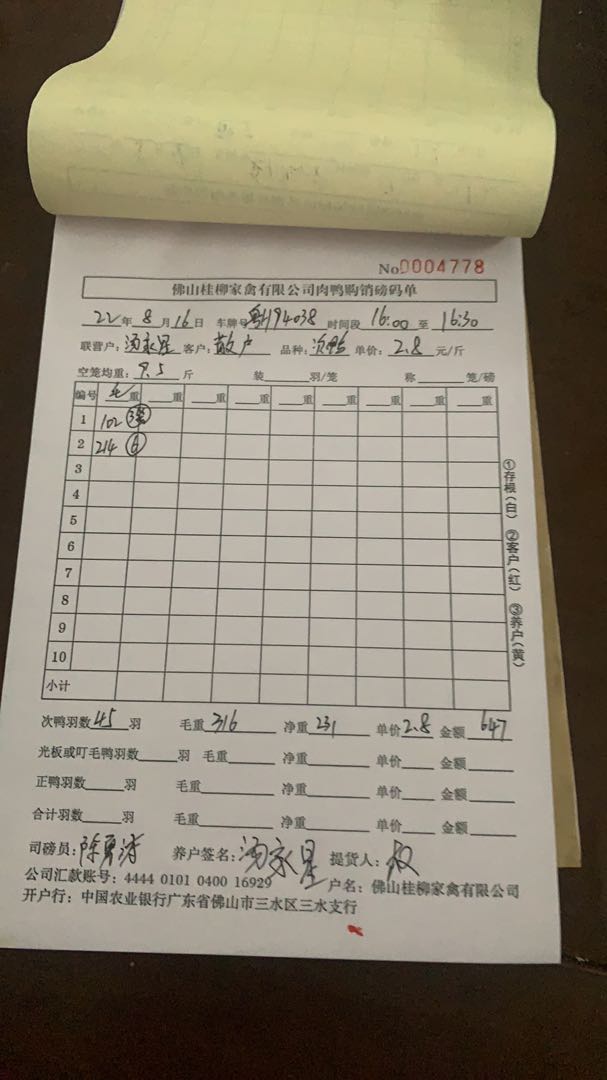 No 0004778
佛山桂柳家禽有限公司肉鸭购销磅码单
22年8月16日 车牌号 94038 时间段 16:00 至 16:30
联营户：汤永星 客户：散户 品种：次鸭 单价：2.8 元/斤
空笼均重：9.5 斤 装 羽/笼 称 笼/磅
编号 毛重 重 重 重 重 重 重 重 重
1 102 ③
2 214 ⑥
3
4
5
6
7
8
9
10
小计
①存根(白) ②客户(红) ③养户(黄)
次鸭羽数 45 羽 毛重 316 净重 231 单价 2.8 金额 647
光板或叮毛鸭羽数 羽 毛重 净重 单价 金额
正鸭羽数 羽 毛重 净重 单价 金额
合计羽数 羽 毛重 净重 单价 金额
司磅员： 养户签名：汤永星 提货人：
公司汇款账号：4444 0101 0400 16929 户名：佛山桂柳家禽有限公司
开户行：中国农业银行广东省佛山市三水区三水支行